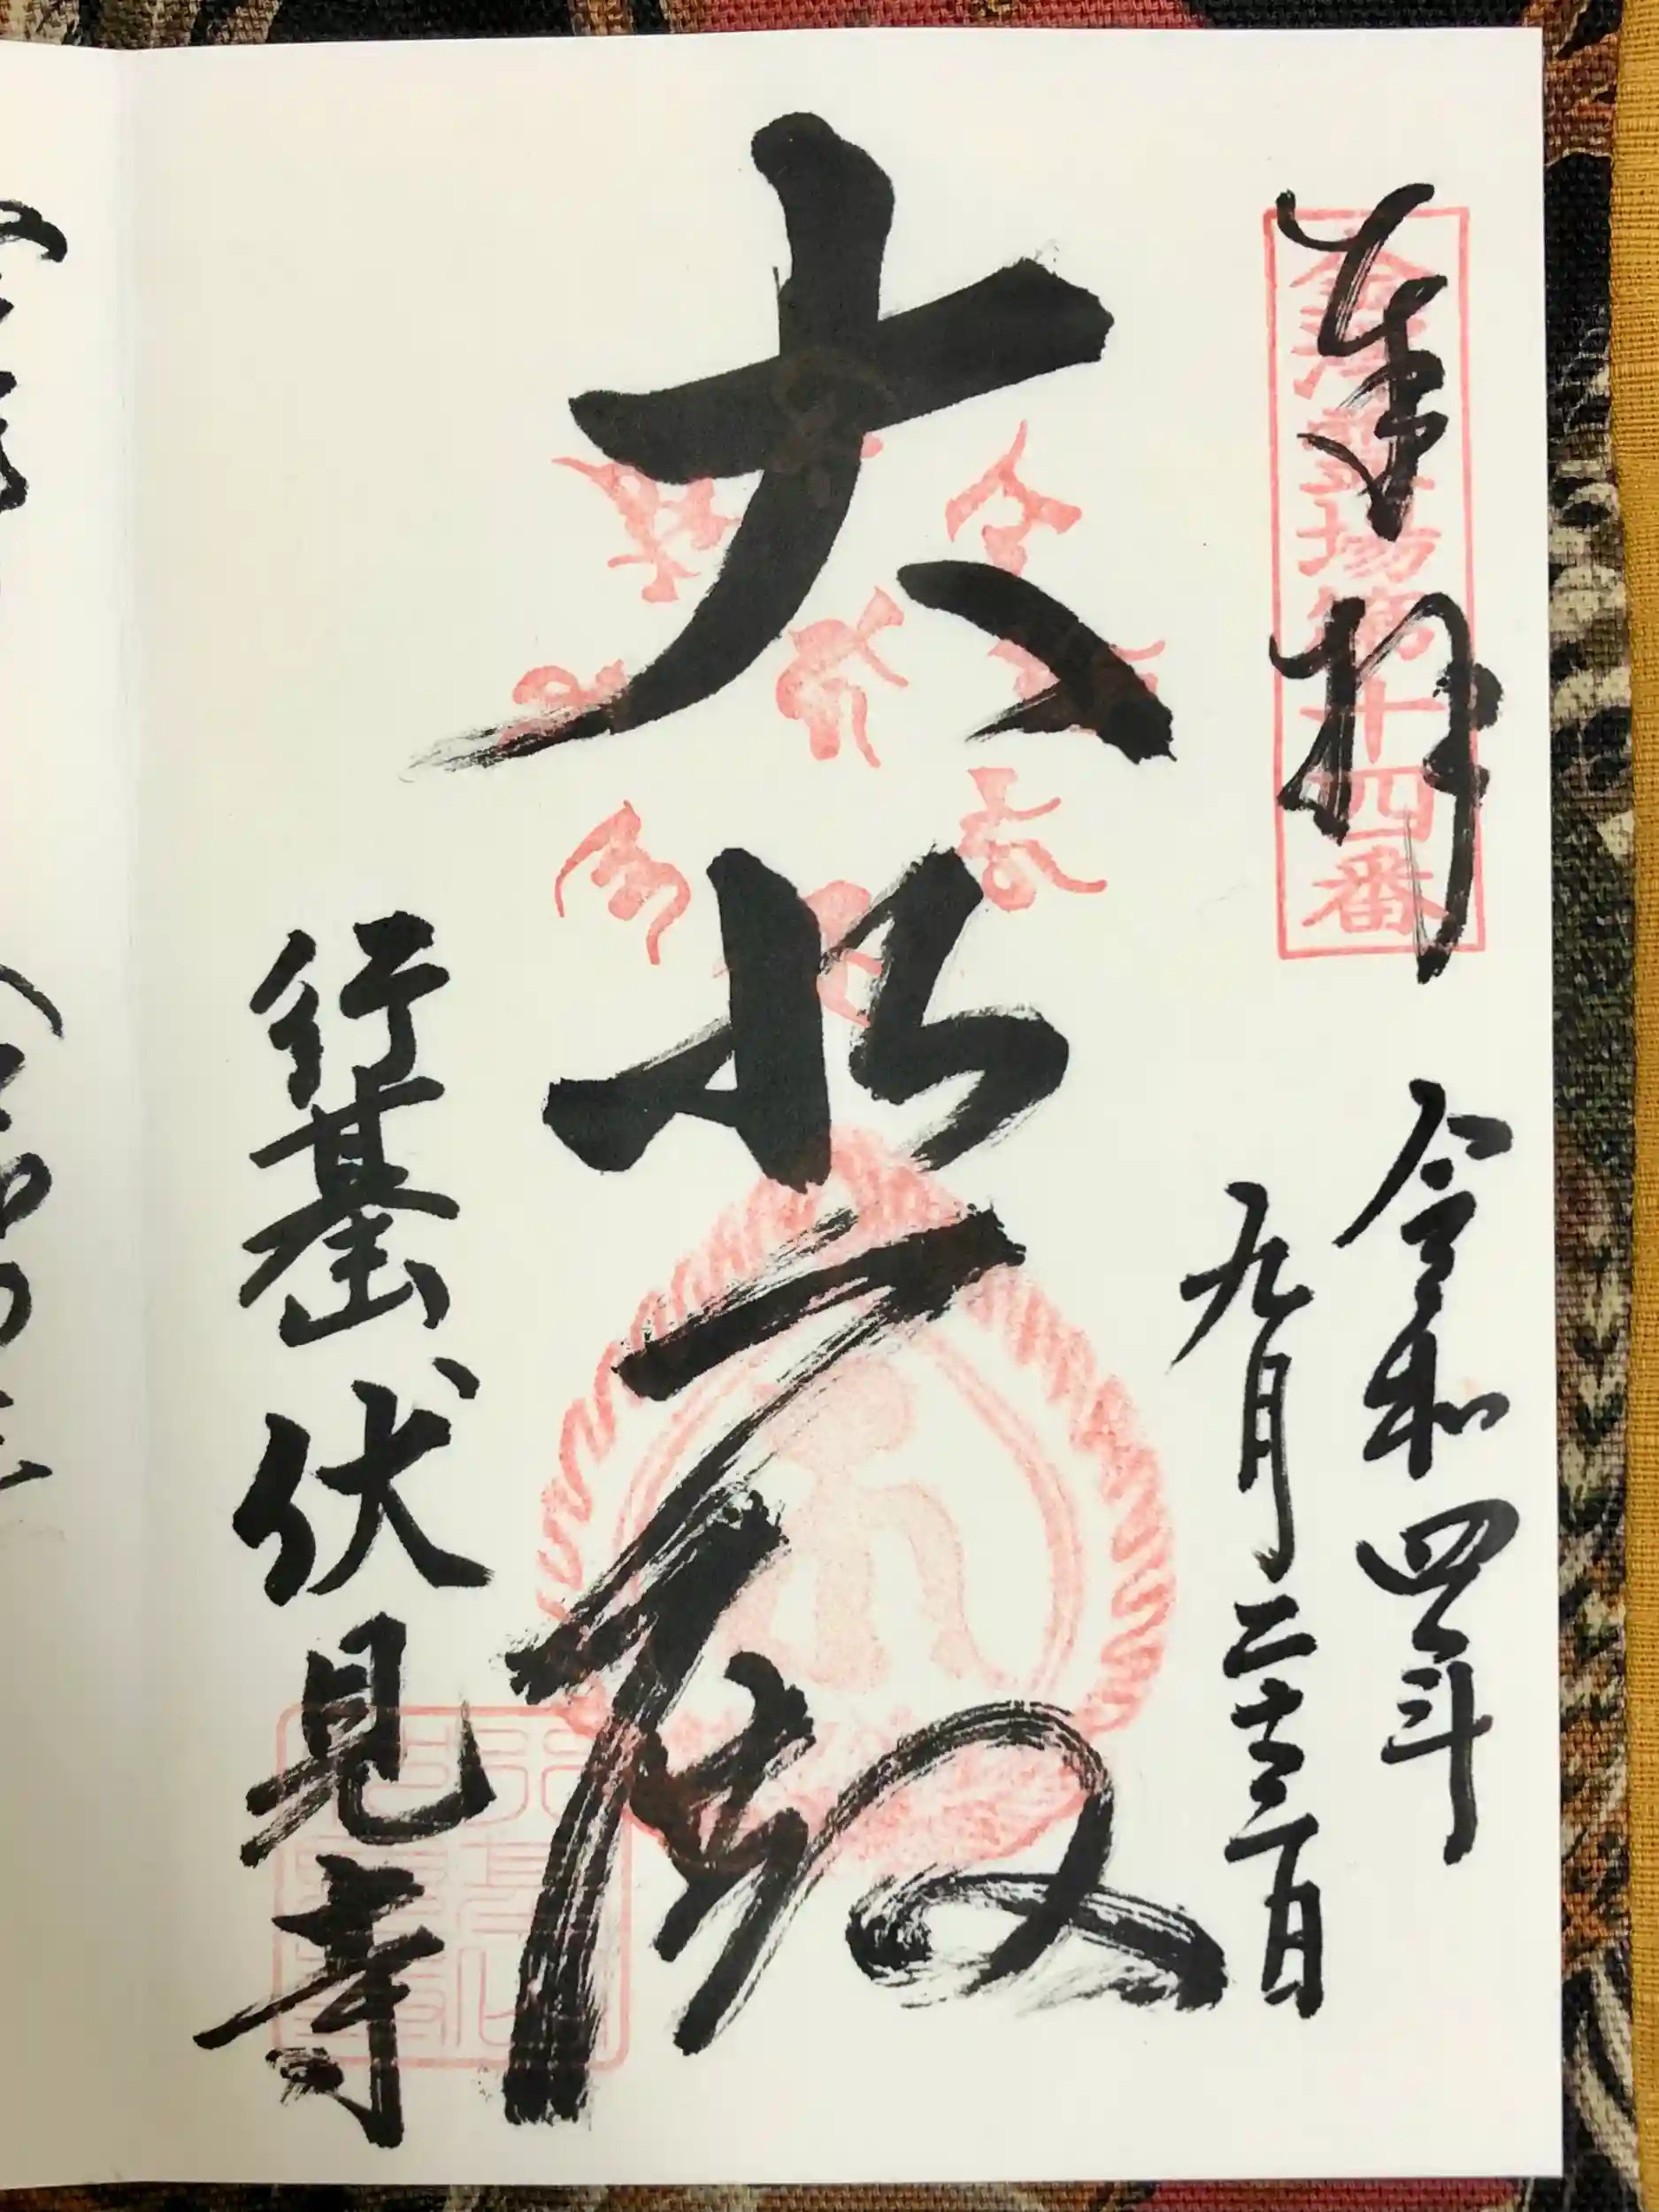 奉拝
金沢霊場第十四番
令和四年
九月二十三日
大悲殿
行基伏見寺